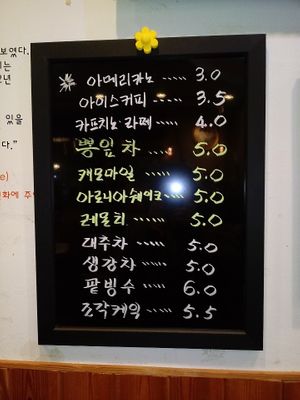 보였다.
는
있을
.”
e)
아메리카노 ..... 3.0
아이스커피 .... 3.5
카프치노 라떼 .... 4.0
뽕잎차 ..... 5.0
캐모마일 ..... 5.0
아로니아쉐이크 .... 5.0
레몬티 ..... 5.0
대추차 ..... 5.0
생강차 ..... 5.0
팥빙수 ..... 6.0
조각케익 ..... 5.5